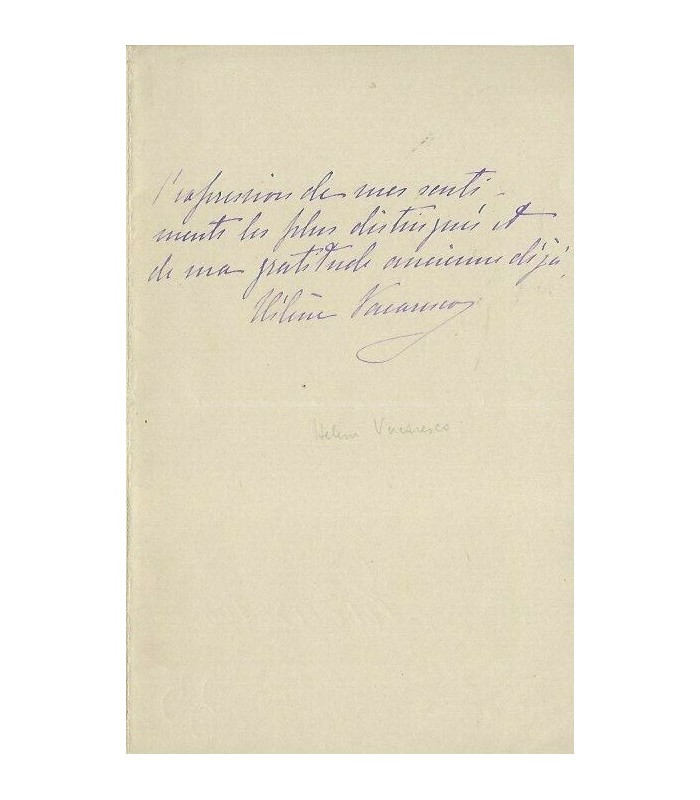 l'expression de mes senti-
ments les plus distingués et
de ma gratitude ancienne déjà.
Hélène Vacaresco
Helene Vacaresco